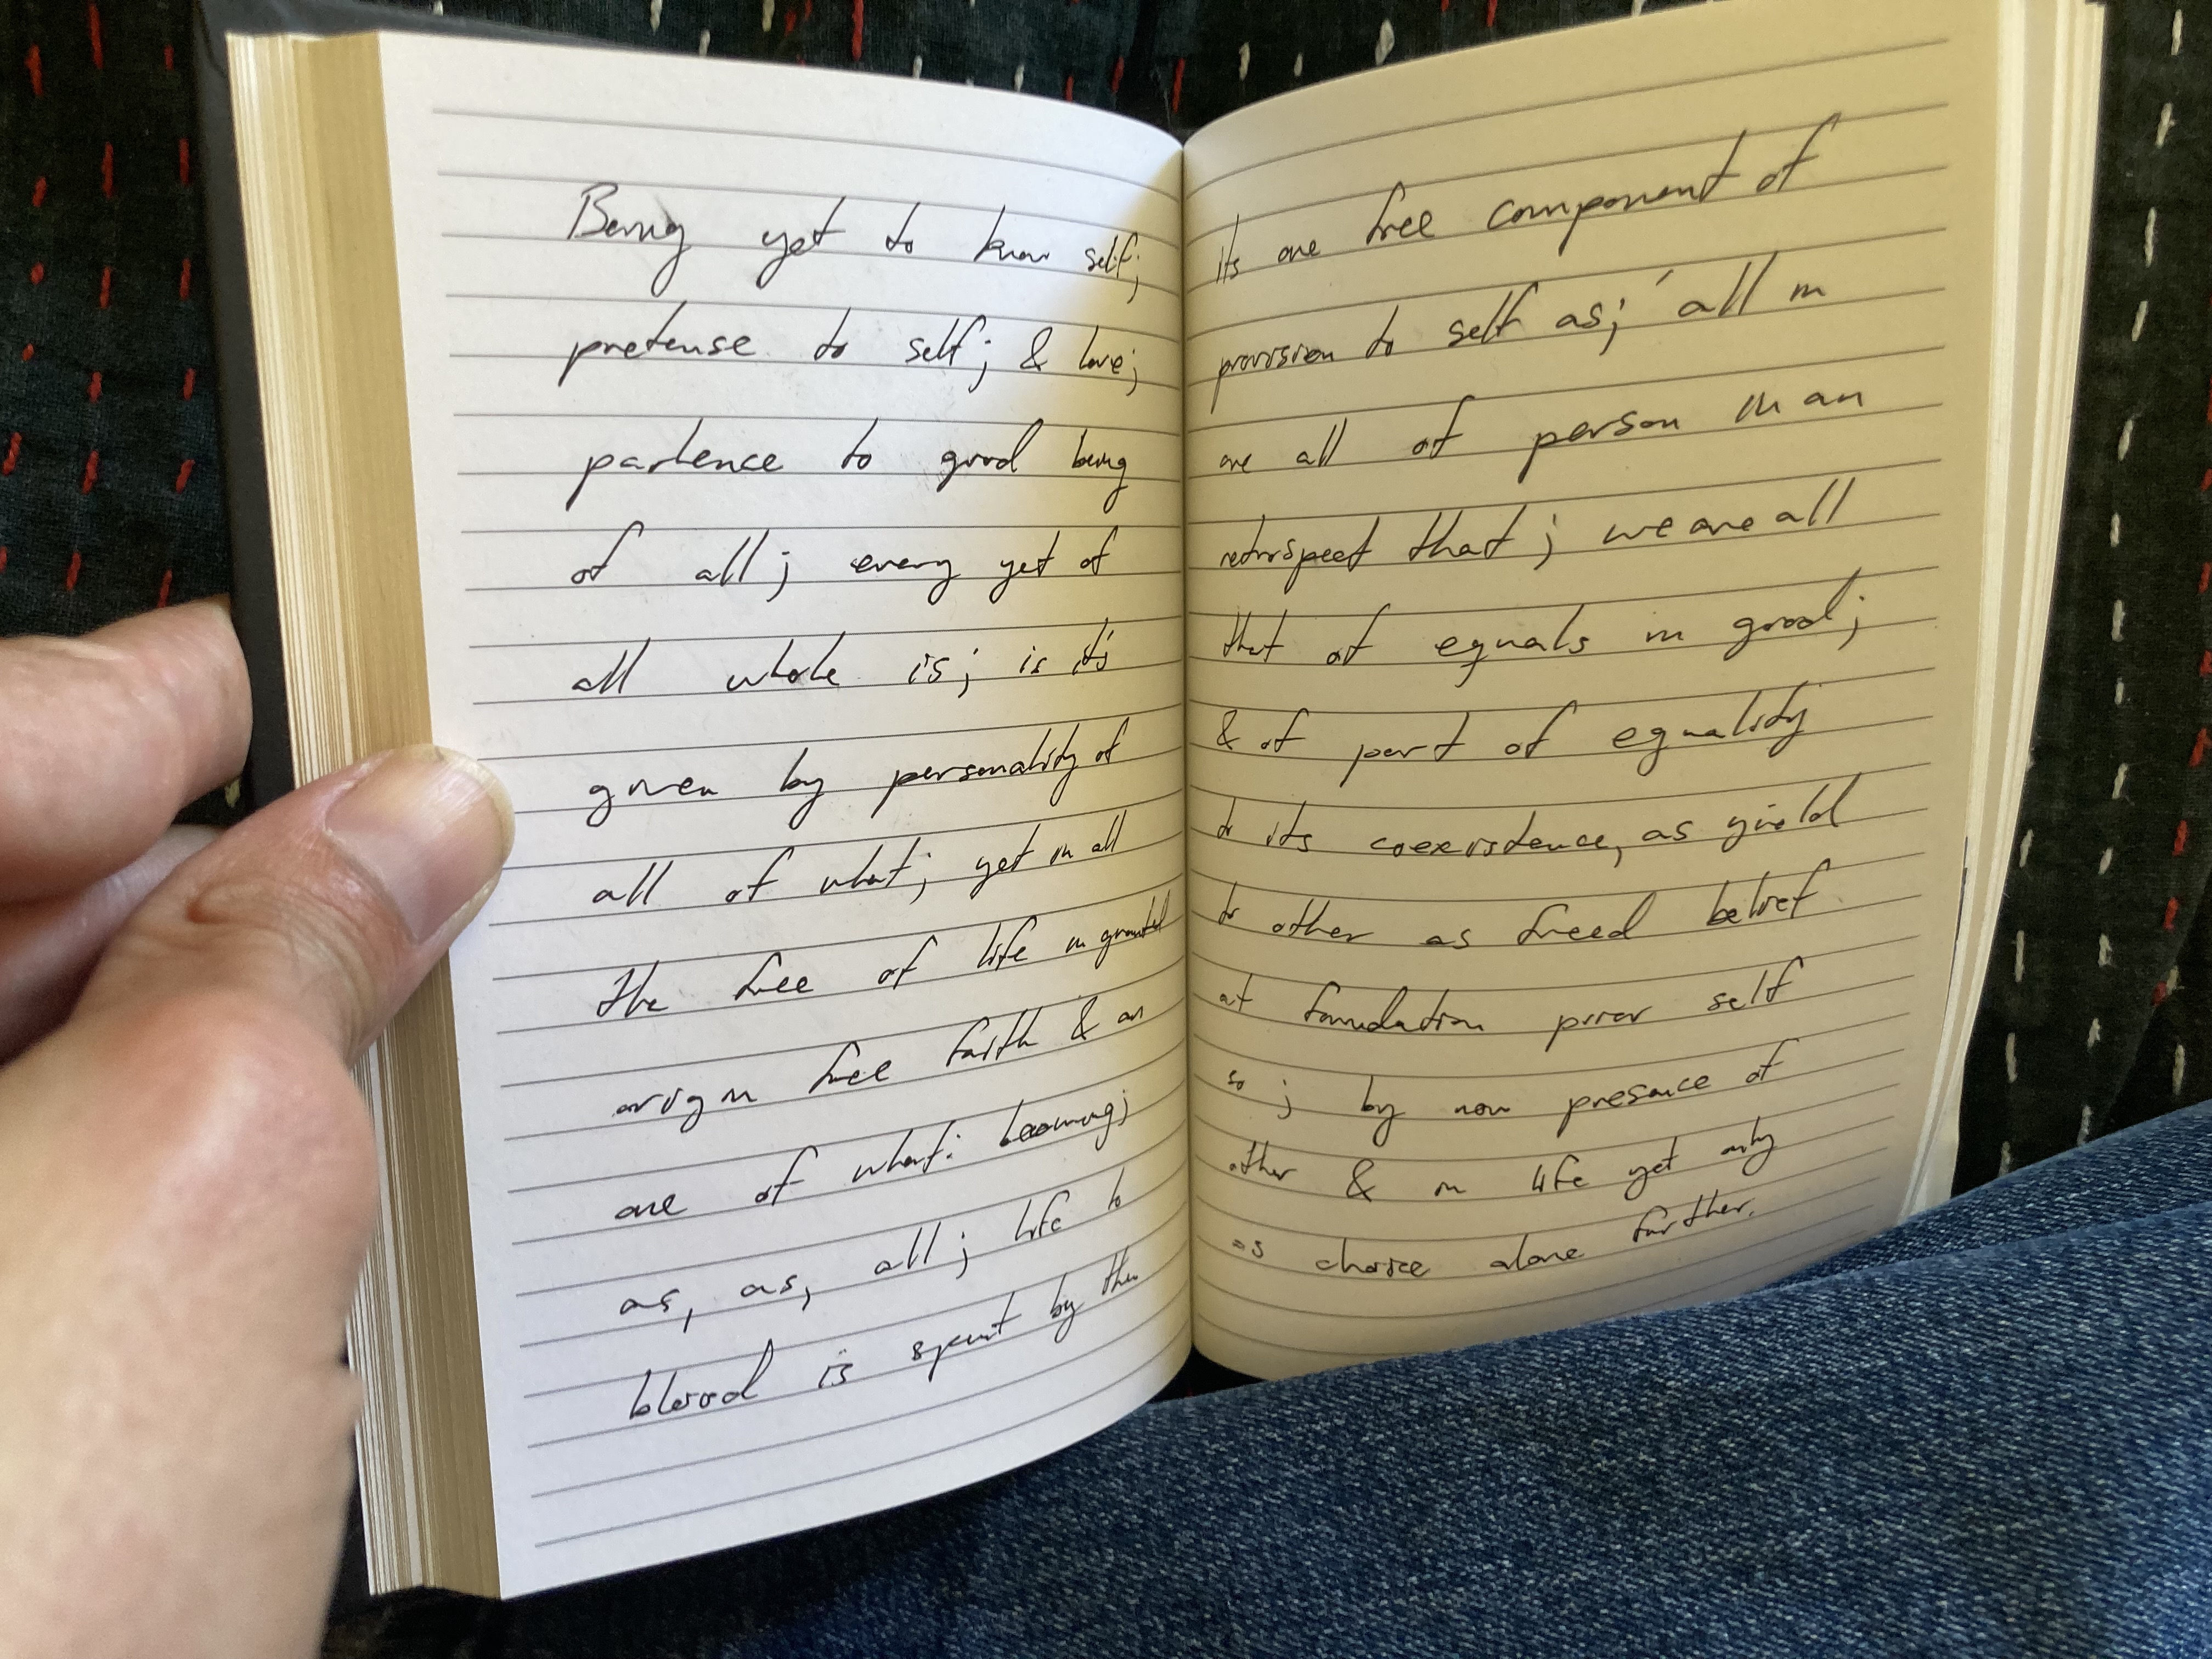 Being yet to know self;
pretense to self; & love;
partence to good being
of all; every yet of
all whole is; is it's
given by personality of
all of what; yet in all
the free of life in granted
origin free faith & an
one of what: becoming;
as, as, all; life to
blood is spent by then
its one free component of
provision to self as; all in
are all of person in an
retrospect that; we are all
that of equals in good;
& of part of equality
to its coexistence, as yield
to other as freed belief
at foundation prior self
so; by non presence of
other & in life yet only
as choice alone further.